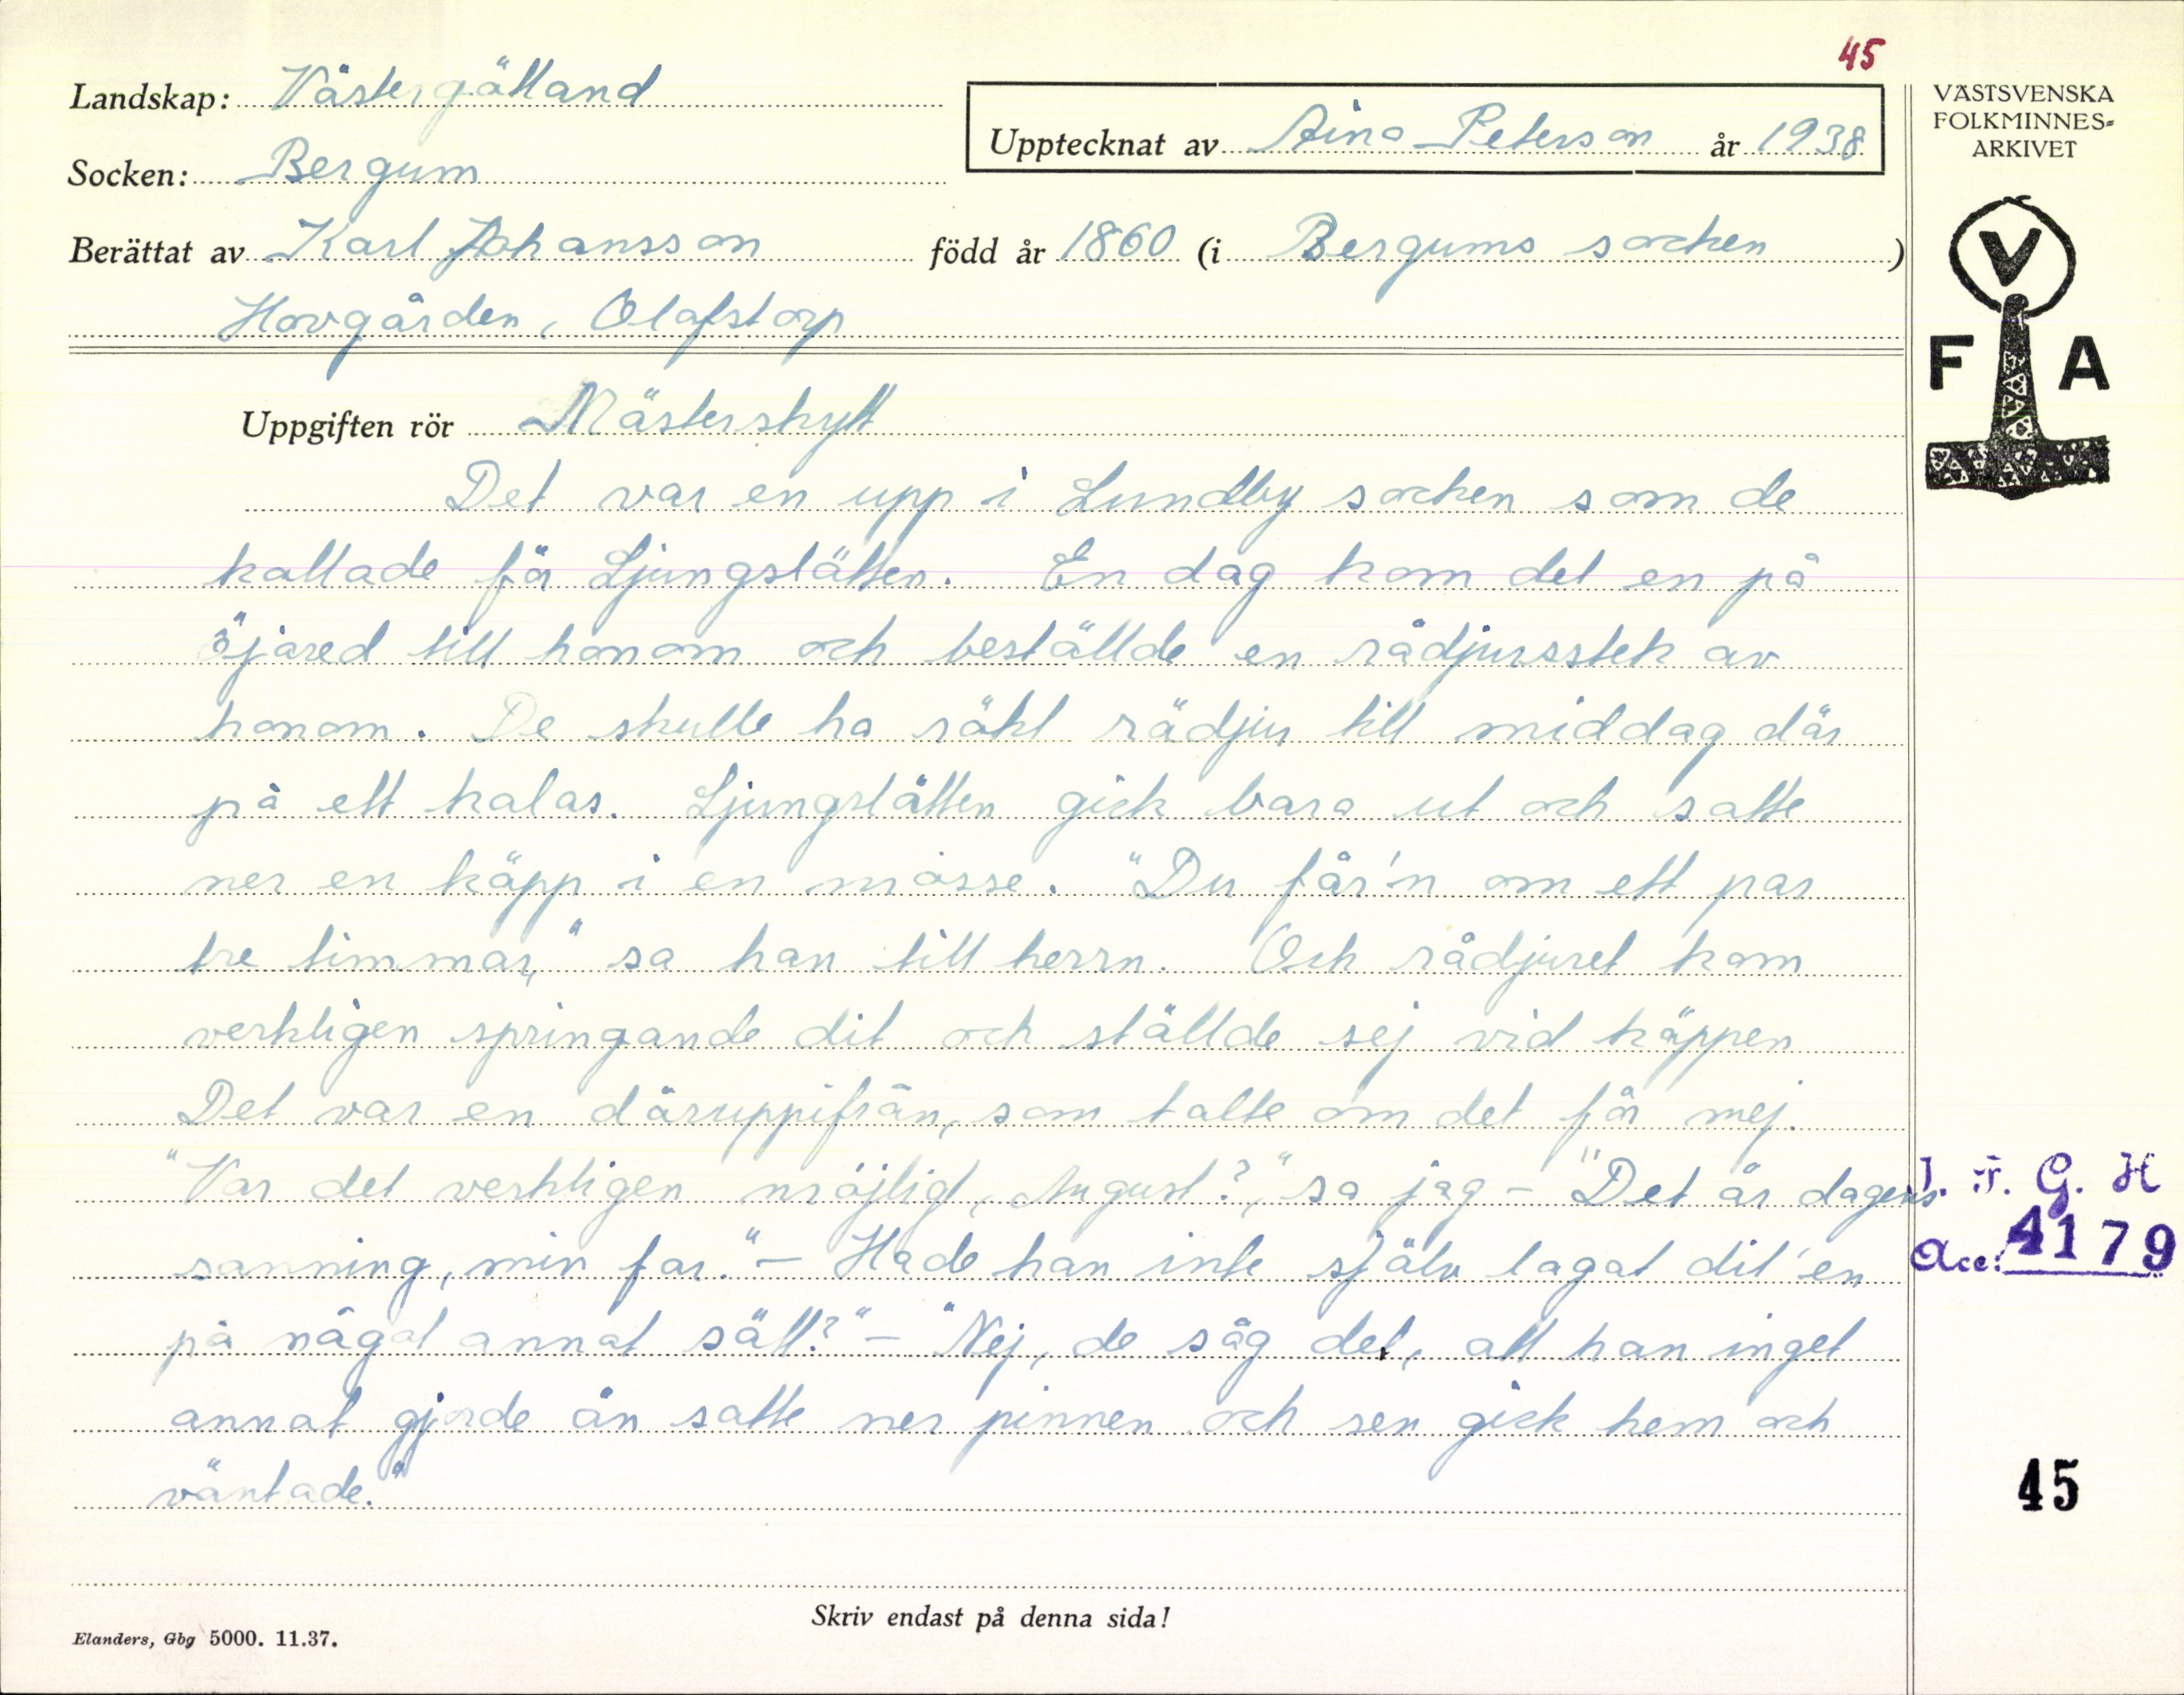 45
Landskap: Västergötland
Upptecknat av Aina Peterson år 1938
Socken: Bergum
Berättat av Karl Johansson född år 1860 (i Bergums socken )
Hovgården, Olofstorp
VÄSTSVENSKA
FOLKMINNES-
ARKIVET
V
F A
Uppgiften rör Mästerskytt
Det var en upp i Lundby socken som de
kallade för Ljungslätten. En dag kom det en på
Öjared till honom och beställde en rådjursstek av
honom. De skulle ha sökt rådjur till middag där
på ett kalas. Ljungslätten gick bara ut och satte
ner en käpp i en mosse. "Du får'n om ett par
tre timmar," sa han till herrn. Och rådjuret kom
verkligen springande dit och ställde sej vid käppen
Det var en däruppifrån, som talte om det för mej.
"Var det verkligen möjligt, August?," sa jag – "Det är dagens
sanning, min far." – Hade han inte själv lagat dit'en
på något annat sätt?" – "Nej, de såg det, att han inget
annat gjorde än satte ner pinnen och sen gick hem och
väntade."
I. F. G. H
Acc: 4179
45
Skriv endast på denna sida!
Elanders, Gbg 5000. 11.37.